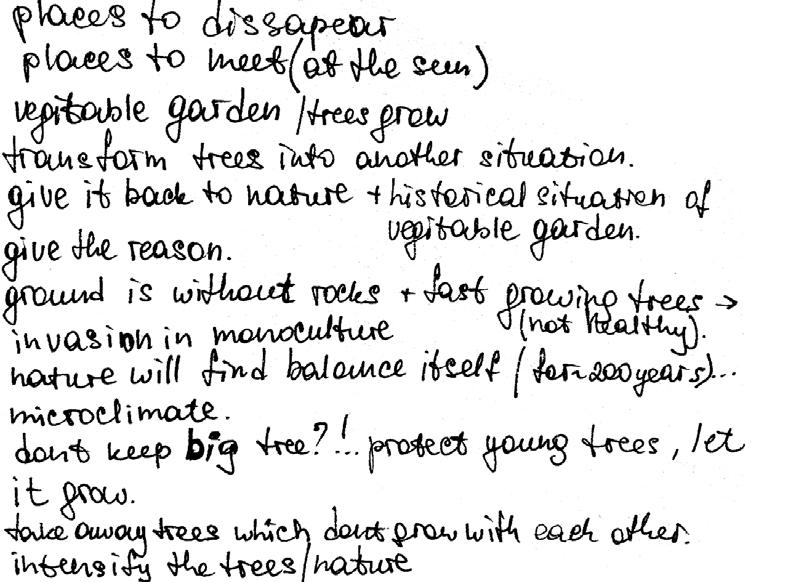 places to dissapear
places to meet (at the sun)
vegitable garden / trees grow
transform trees into another situation.
give it back to nature + historical situation of
vegitable garden.
give the reason.
ground is without rocks + fast growing trees →
(not healthy).
invasion in monoculture
nature will find balance itself (for ~200 years)...
microclimate.
dont keep big tree?!.. protect young trees, let
it grow.
take away trees which dont grow with each other.
intensify the trees/nature